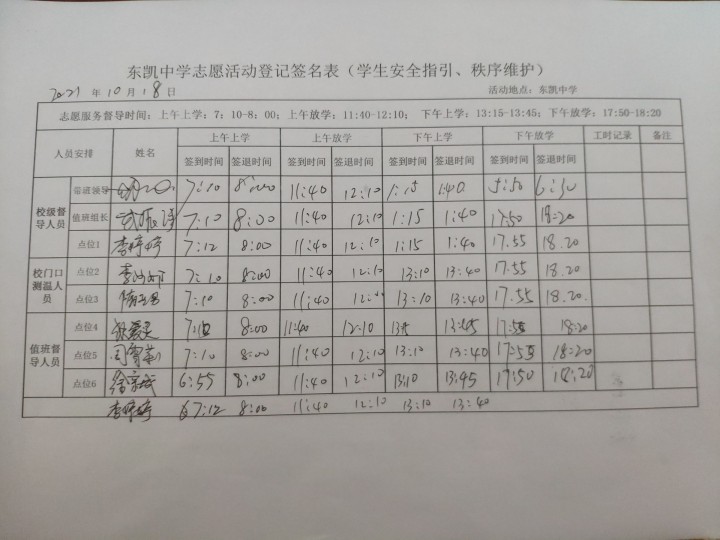 东凯中学志愿活动登记签名表（学生安全指引、秩序维护）
2021 年 10 月 18 日 活动地点：东凯中学
志愿服务督导时间：上午上学：7：10-8：00；上午放学：11:40-12:10； 下午上学：13:15-13:45；下午放学：17:50-18:20
人员安排 姓名 上午上学 上午放学 下午上学 下午放学 工时记录 备注
签到时间 签退时间 签到时间 签退时间 签到时间 签退时间 签到时间 签退时间
校级督导人员 带班领导 7:10 8:00 11:40 12:10 1:15 1:40 5:50 6:30
值班组长 7:10 8:00 11:40 12:10 1:15 1:40 17:50 18:20
点位1 李婷婷 7:12 8:00 11:40 12:10 1:15 1:40 17.55 18.20
校门口测温人员 点位2 7:10 8:00 11:40 12:10 13:10 13:40 17.55 18.20
点位3 7:10 8:00 11:40 13:10 13:40 17.55 18.20.
值班督导人员 点位4 8:00 11:40 12:10 13:45 17:55 18:20
点位5 7:10 8:00 11:40 12:10 13:10 13:40 17:55 18:20
点位6 6:55 8:00 11:40 12:10 13:10 13:45 17:50 18:20
李婷婷 7:12 8:00 11:40 12:10 13:10 13:40